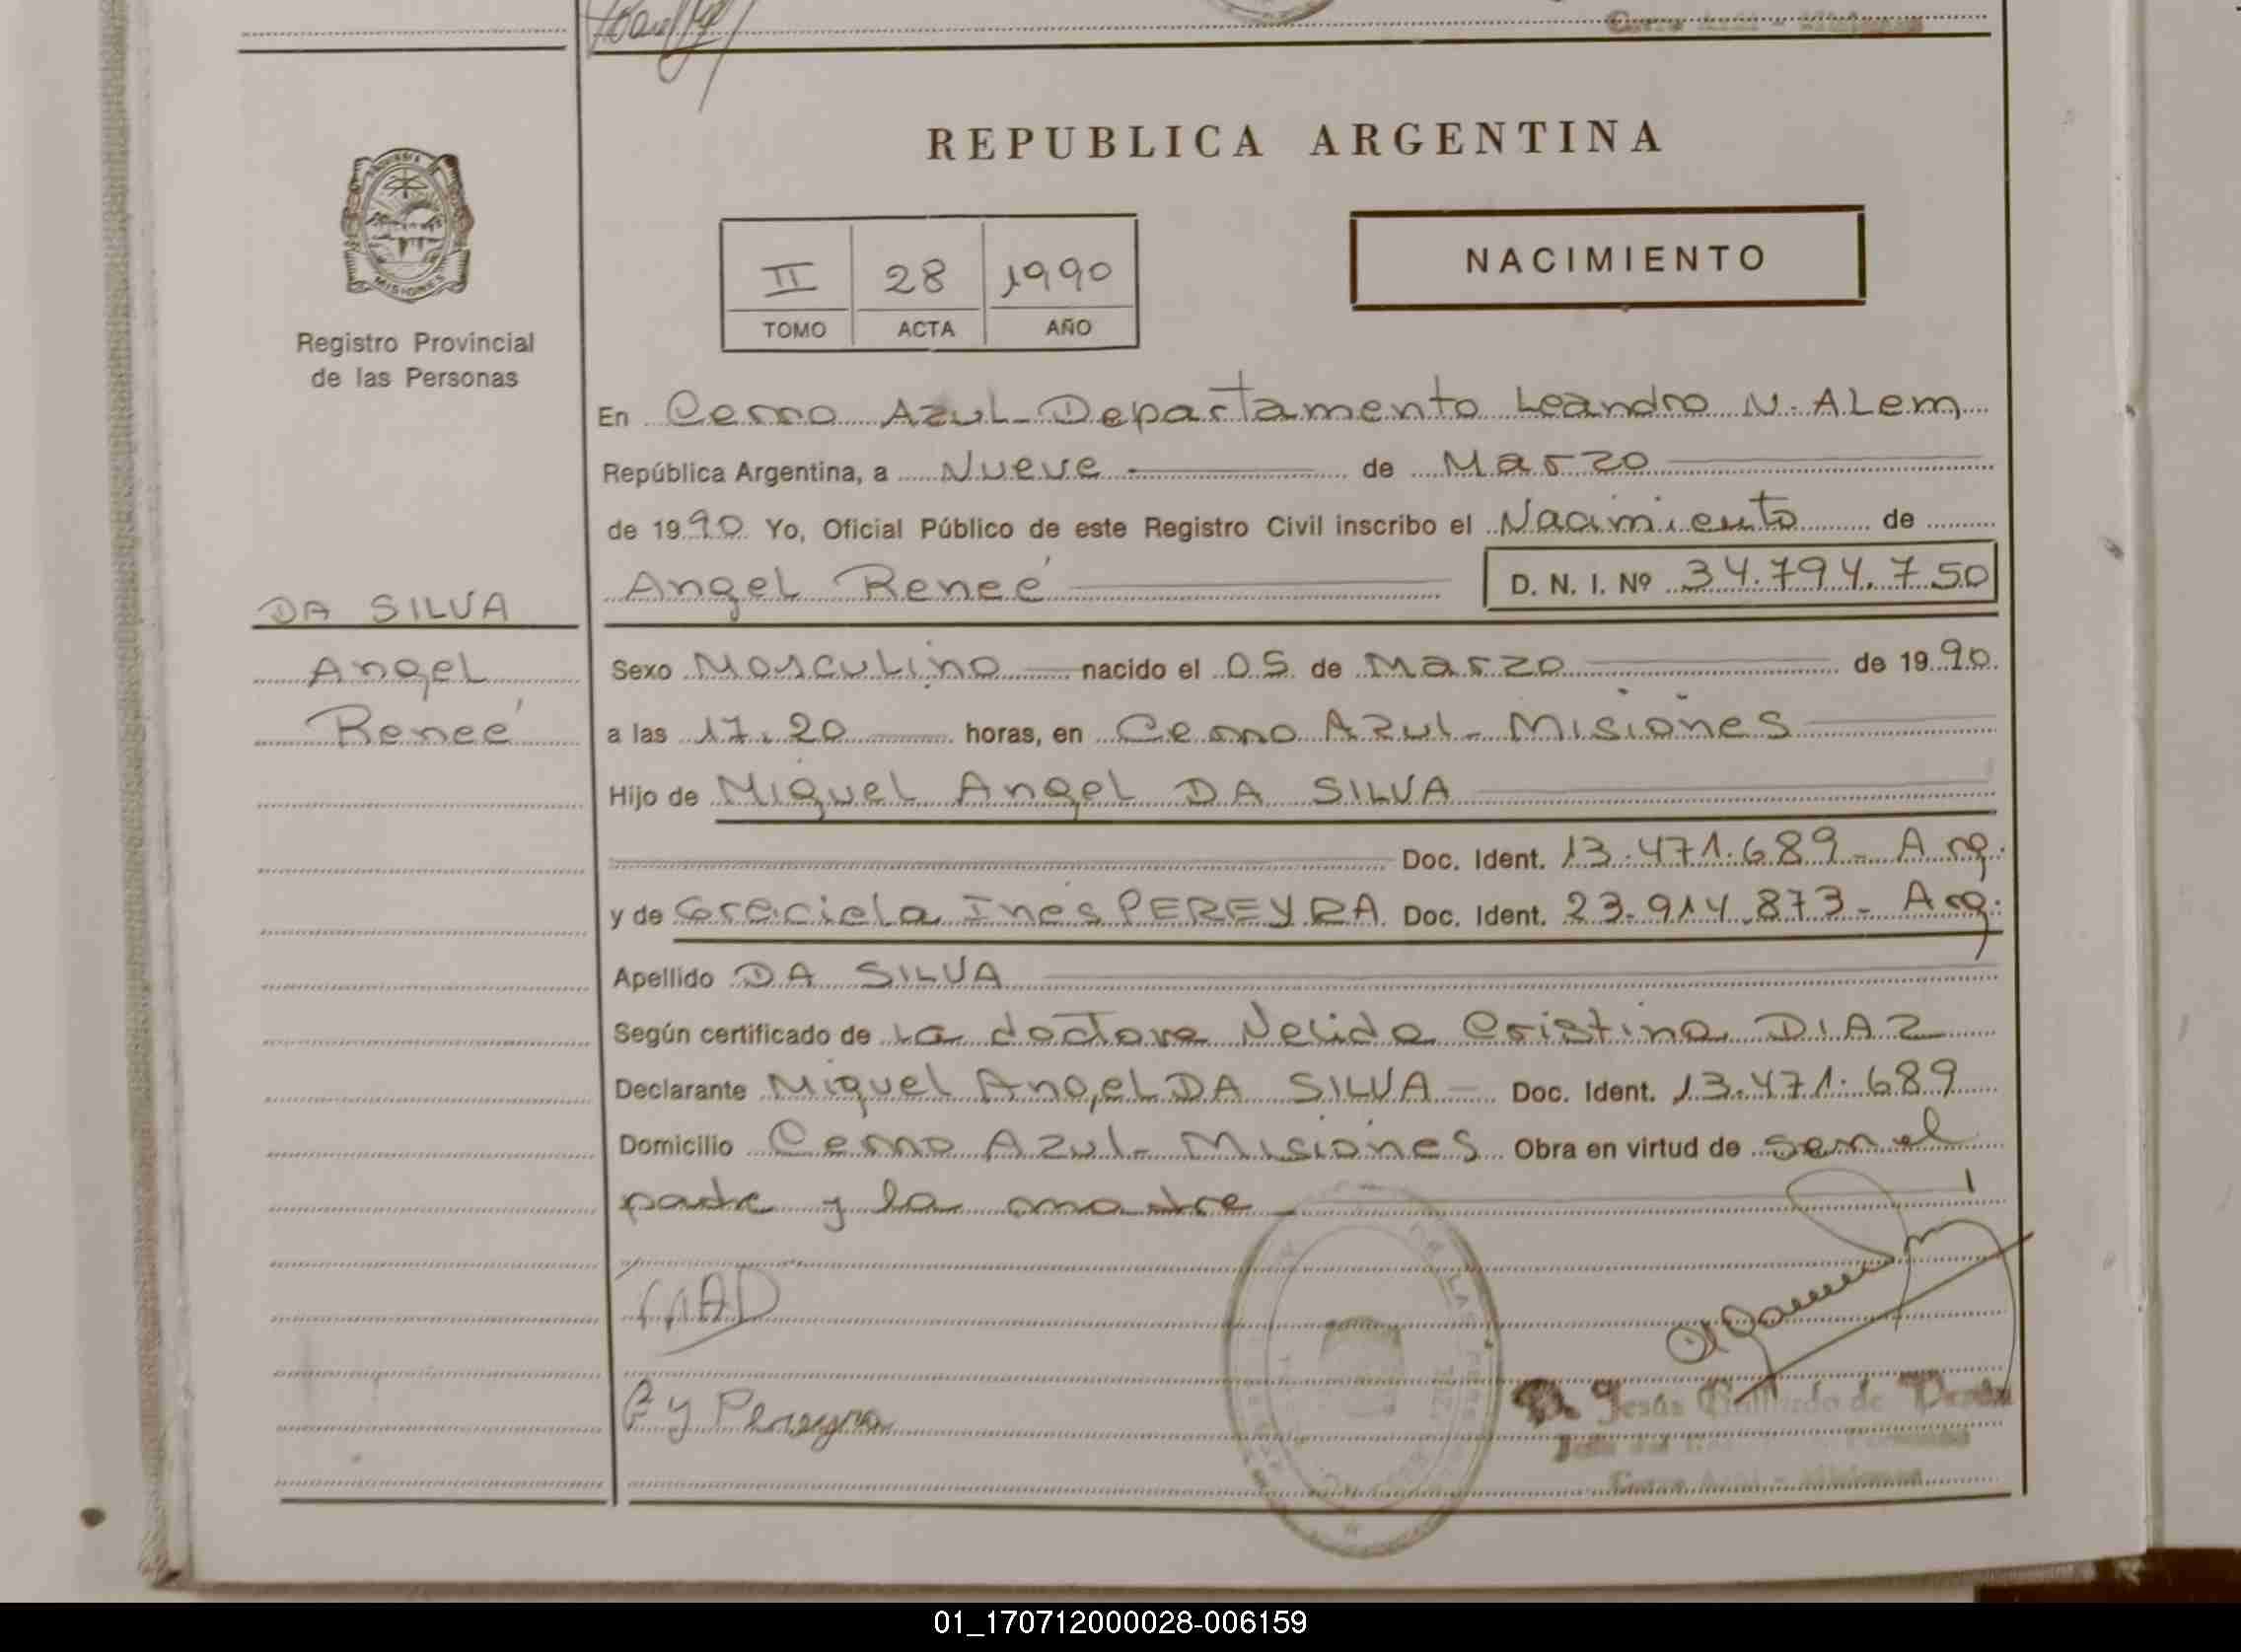 REPUBLICA ARGENTINA
MISIONES
Registro Provincial
de las Personas
II 28 1990
TOMO ACTA AÑO
NACIMIENTO
En Cerro Azul - Departamento Leandro N. ALem
República Argentina, a Nueve de Marzo
de 1990 Yo, Oficial Público de este Registro Civil inscribo el Nacimiento de
Angel Reneé D. N. I. Nº 34.794.750
DA SILVA
Angel
Reneé
Sexo Masculino nacido el 05 de Marzo de 1990.
a las 17.20 horas, en Cerro Azul - Misiones
Hijo de Miguel Angel DA SILVA
Doc. Ident. 13.471.689 - Arg.
y de Graciela Inés PEREYRA Doc. Ident. 23.914.873 - Arg.
Apellido DA SILVA
Según certificado de La doctora Nelida Cristina DIAZ
Declarante Miguel Angel DA SILVA - Doc. Ident. 13.471.689
Domicilio Cerro Azul - Misiones Obra en virtud de ser el
padre y la madre -
MAD
Pereyra
Jesús de
01_170712000028-006159